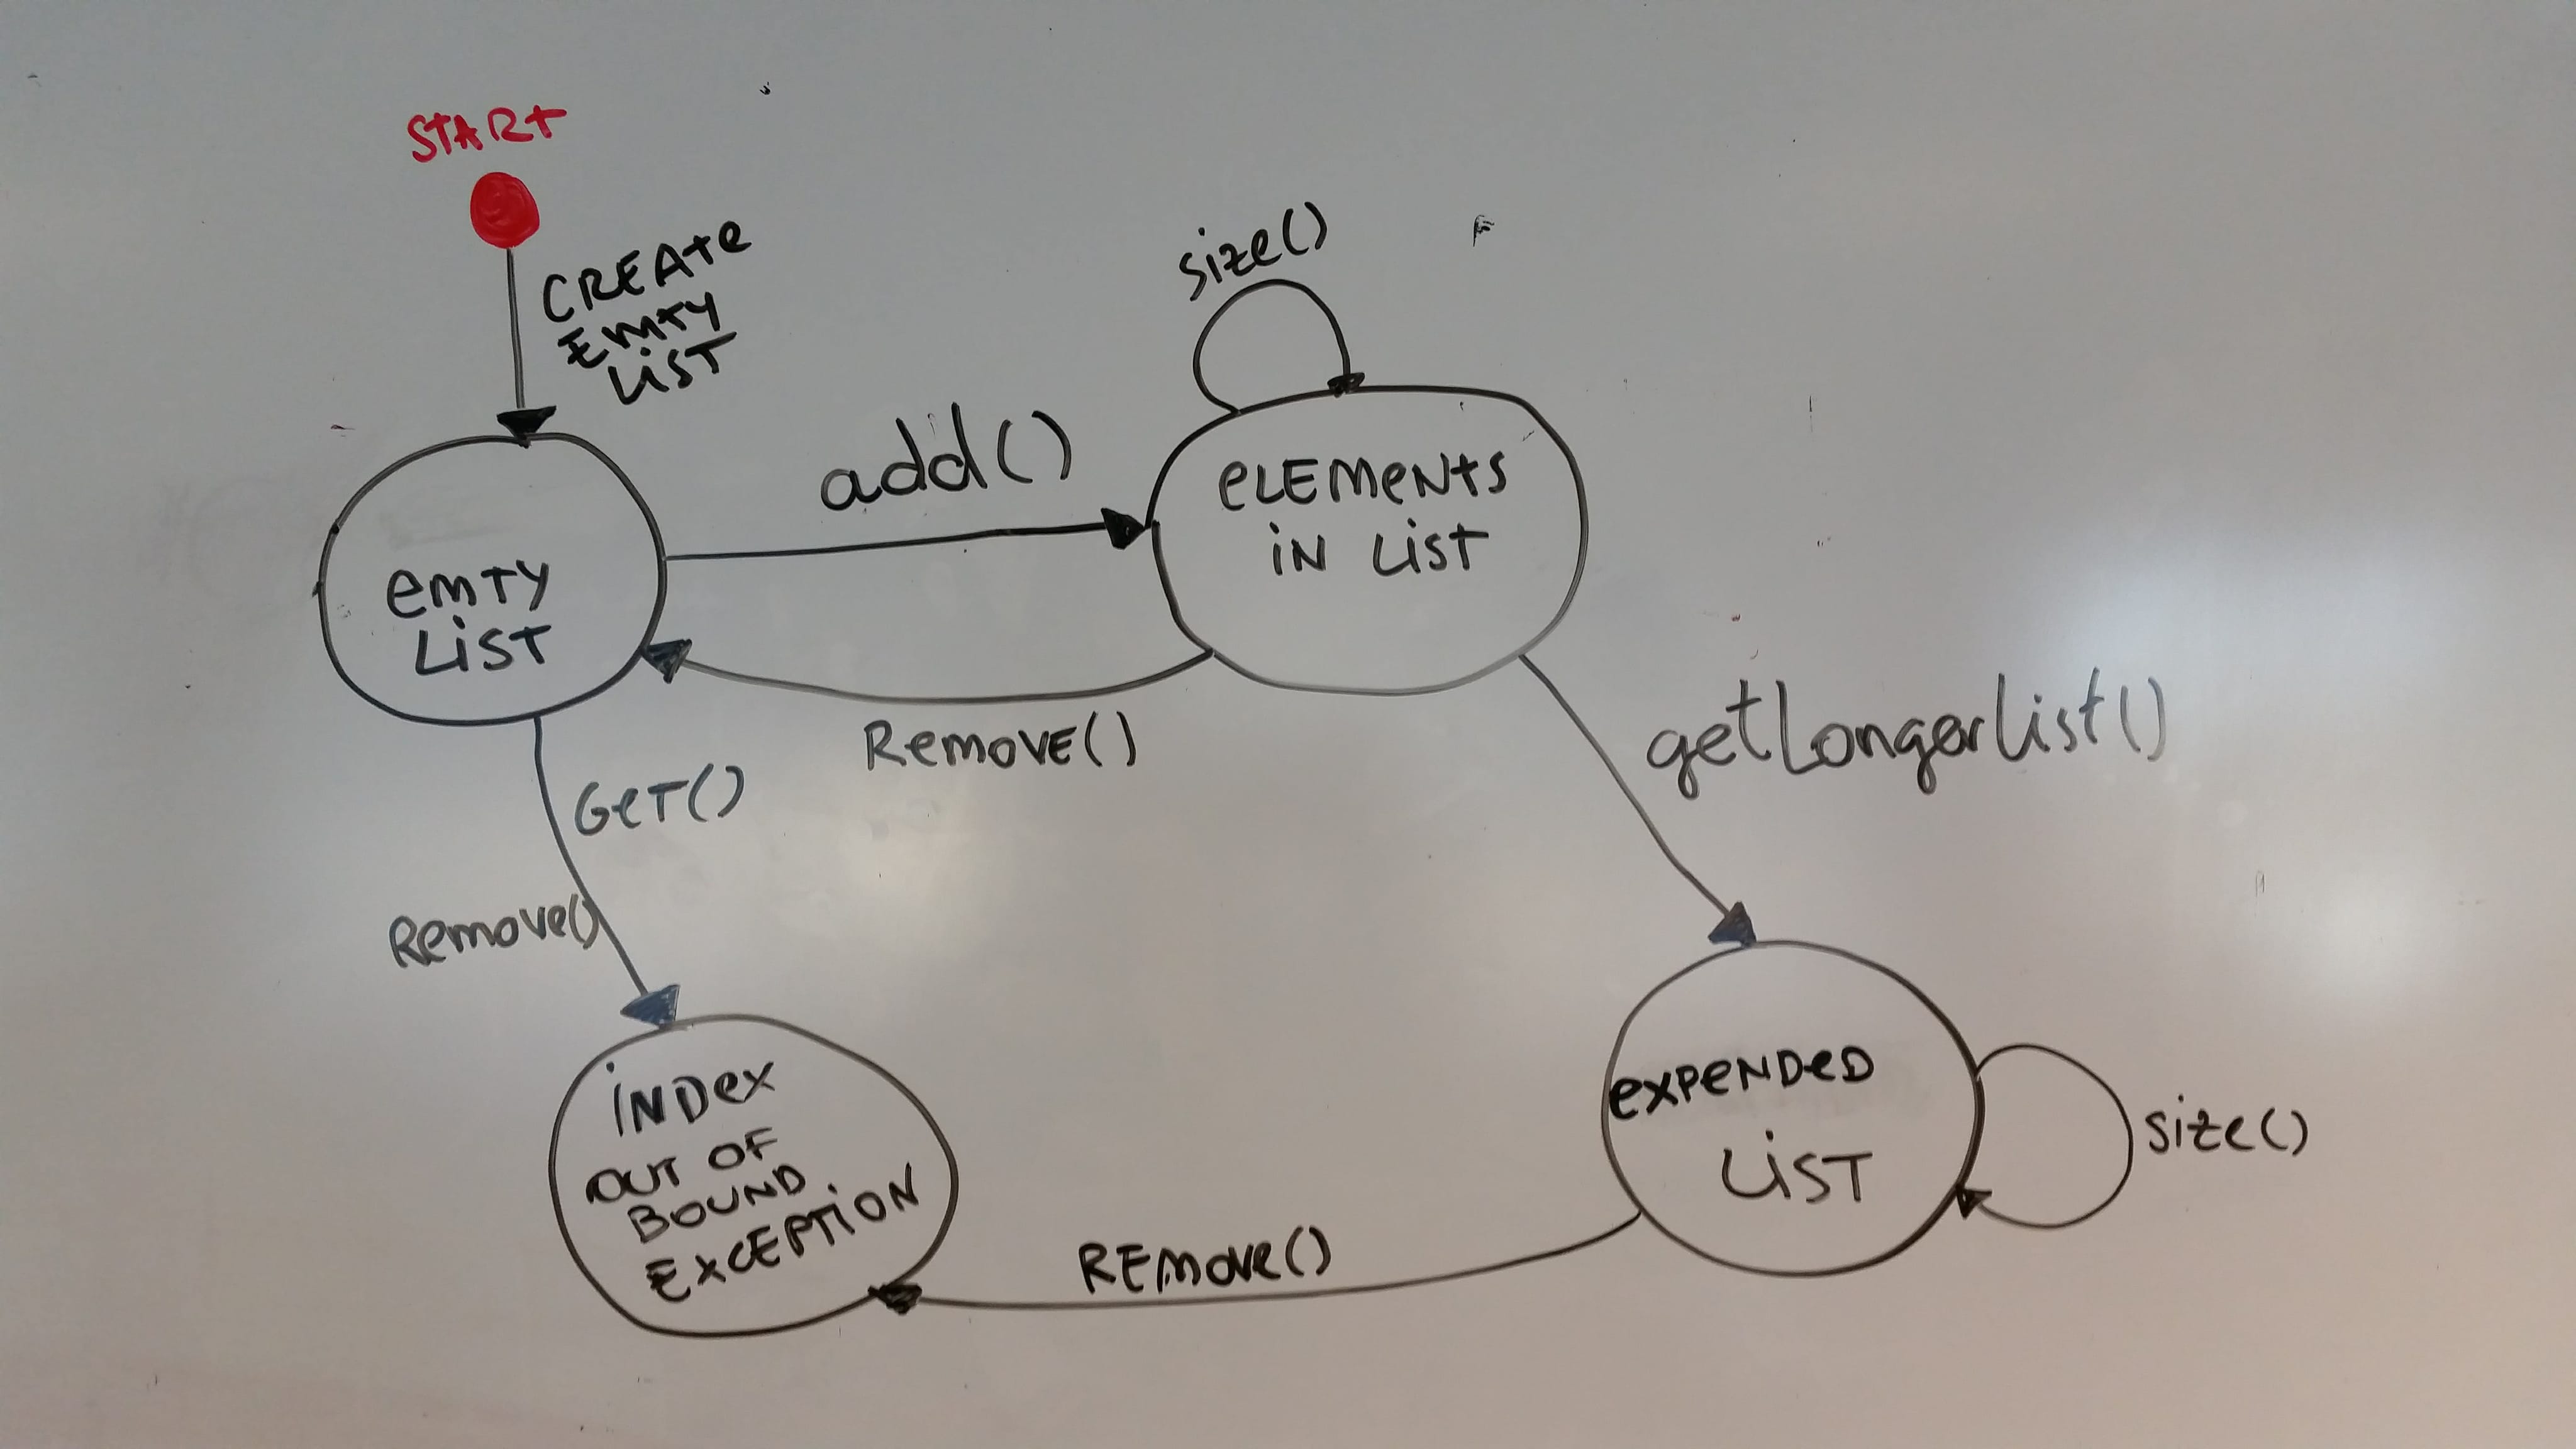 START
CREATE
EMTY
LIST
size()
add()
eLEMeNtS
iN LiST
emTY
LiST
Remove()
getLongerList()
GeT()
Remove()
iNDex
OUT OF
BOUND
EXCEPTiON
exPeNDeD
LiST
size()
REmove()